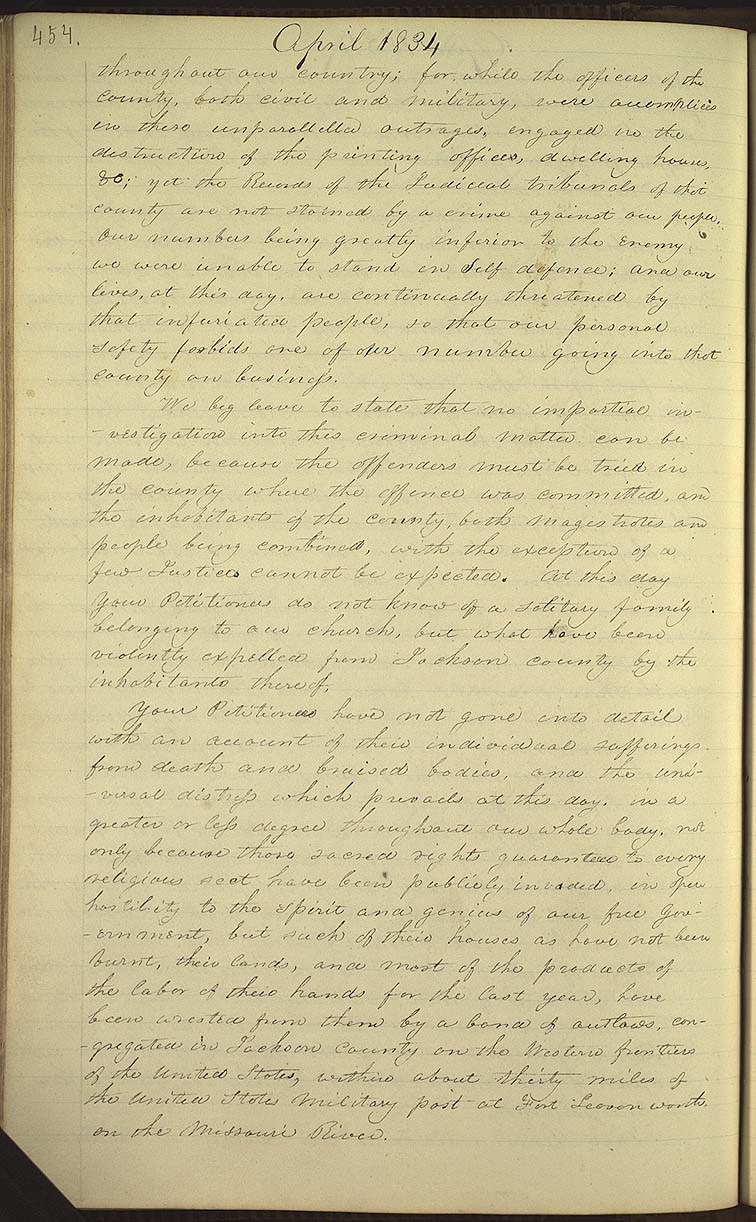 454.
April 1834
throughout our country; for, while the officers of the
County, both civil and military, were accomplices
in these unparallelled outrages, engaged in the
distruction of the printing office, dwelling houses,
&c; yet the Records of the Judicial tribunals of that
county are not stained by a crime against our people.
Our numbers being greatly inferior to the Enemy
we were unable to stand in Self defence; and our
lives, at this day, are continually threatened by
that infuriated people, so that our personal
safety forbids one of our number going into that
county on business.
We beg leave to state that no impartial in-
-vestigation into this criminal matter can be
made, because the offenders must be tried in
the county where the offence was committed, and
the inhabitants of the county, both magistrates and
people being combined, with the exception of a
few Justice cannot be expected. At this day
your Petitioners do not know of a solitary family
belonging to our church, but what have been
violently expelled from Jackson county by the
inhabitants thereof.
Your Petitioners have not gone into detail
with an account of their individual sufferings
from death and bruised bodies, and the uni-
-versal distress which prevails at this day, in a
greater or less degree throughout our whole body, not
only because those sacred rights guaranteed to every
religious sect have been publicly invaded, in open
hostility to the Spirit and genius of our free Gov-
-ernment, but such of their houses as have not been
burnt, their lands, and most of the products of
the labor of their hands for the last year, have
been wrested from them by a band of outlaws, con-
-gregated in Jackson County on the Western frontiers
of the United States, within about thirty miles of
the United States Military post at Fort Leavenworth
on the Missouri River.